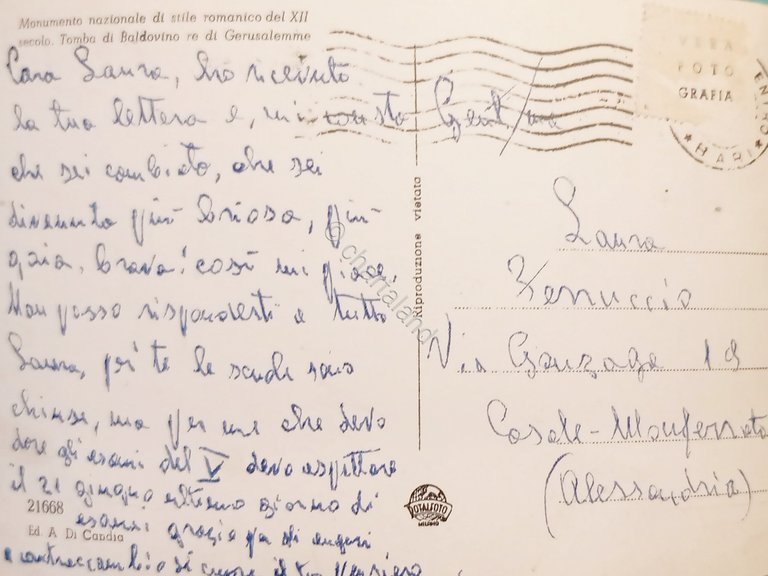 Monumento nazionale di stile romanico del XII
secolo. Tomba di Baldovino re di Gerusalemme
Cara Laura, ho ricevuto
la tua lettera e, mi
che sei cambiata, che sei
divenuta più briosa, più
gaia. brava! così mi piace.
Non posso risponderti a tutto
Laura, per te le scuole sono
chiuse, ma per me che devo
dare gli esami del V devo aspettare
il 21 giugno ultimo giorno di
esami grazie per gli auguri
e contraccambio di cuore il tuo pensiero
21668
Ed. A. Di Candia
Riproduzione vietata
VERA
FOTO
GRAFIA
CENTRO
BARI
Laura
Ferruccio
Via Gonzaga 19
Casale-Monferrato
(Alessandria)
ROTALFOTO
MILANO
© chartaland